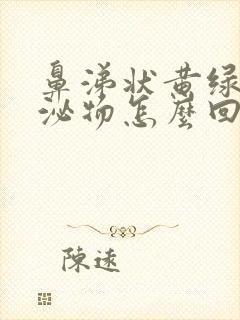 鼻涕状黄绿
泌物怎麼回
陳遠